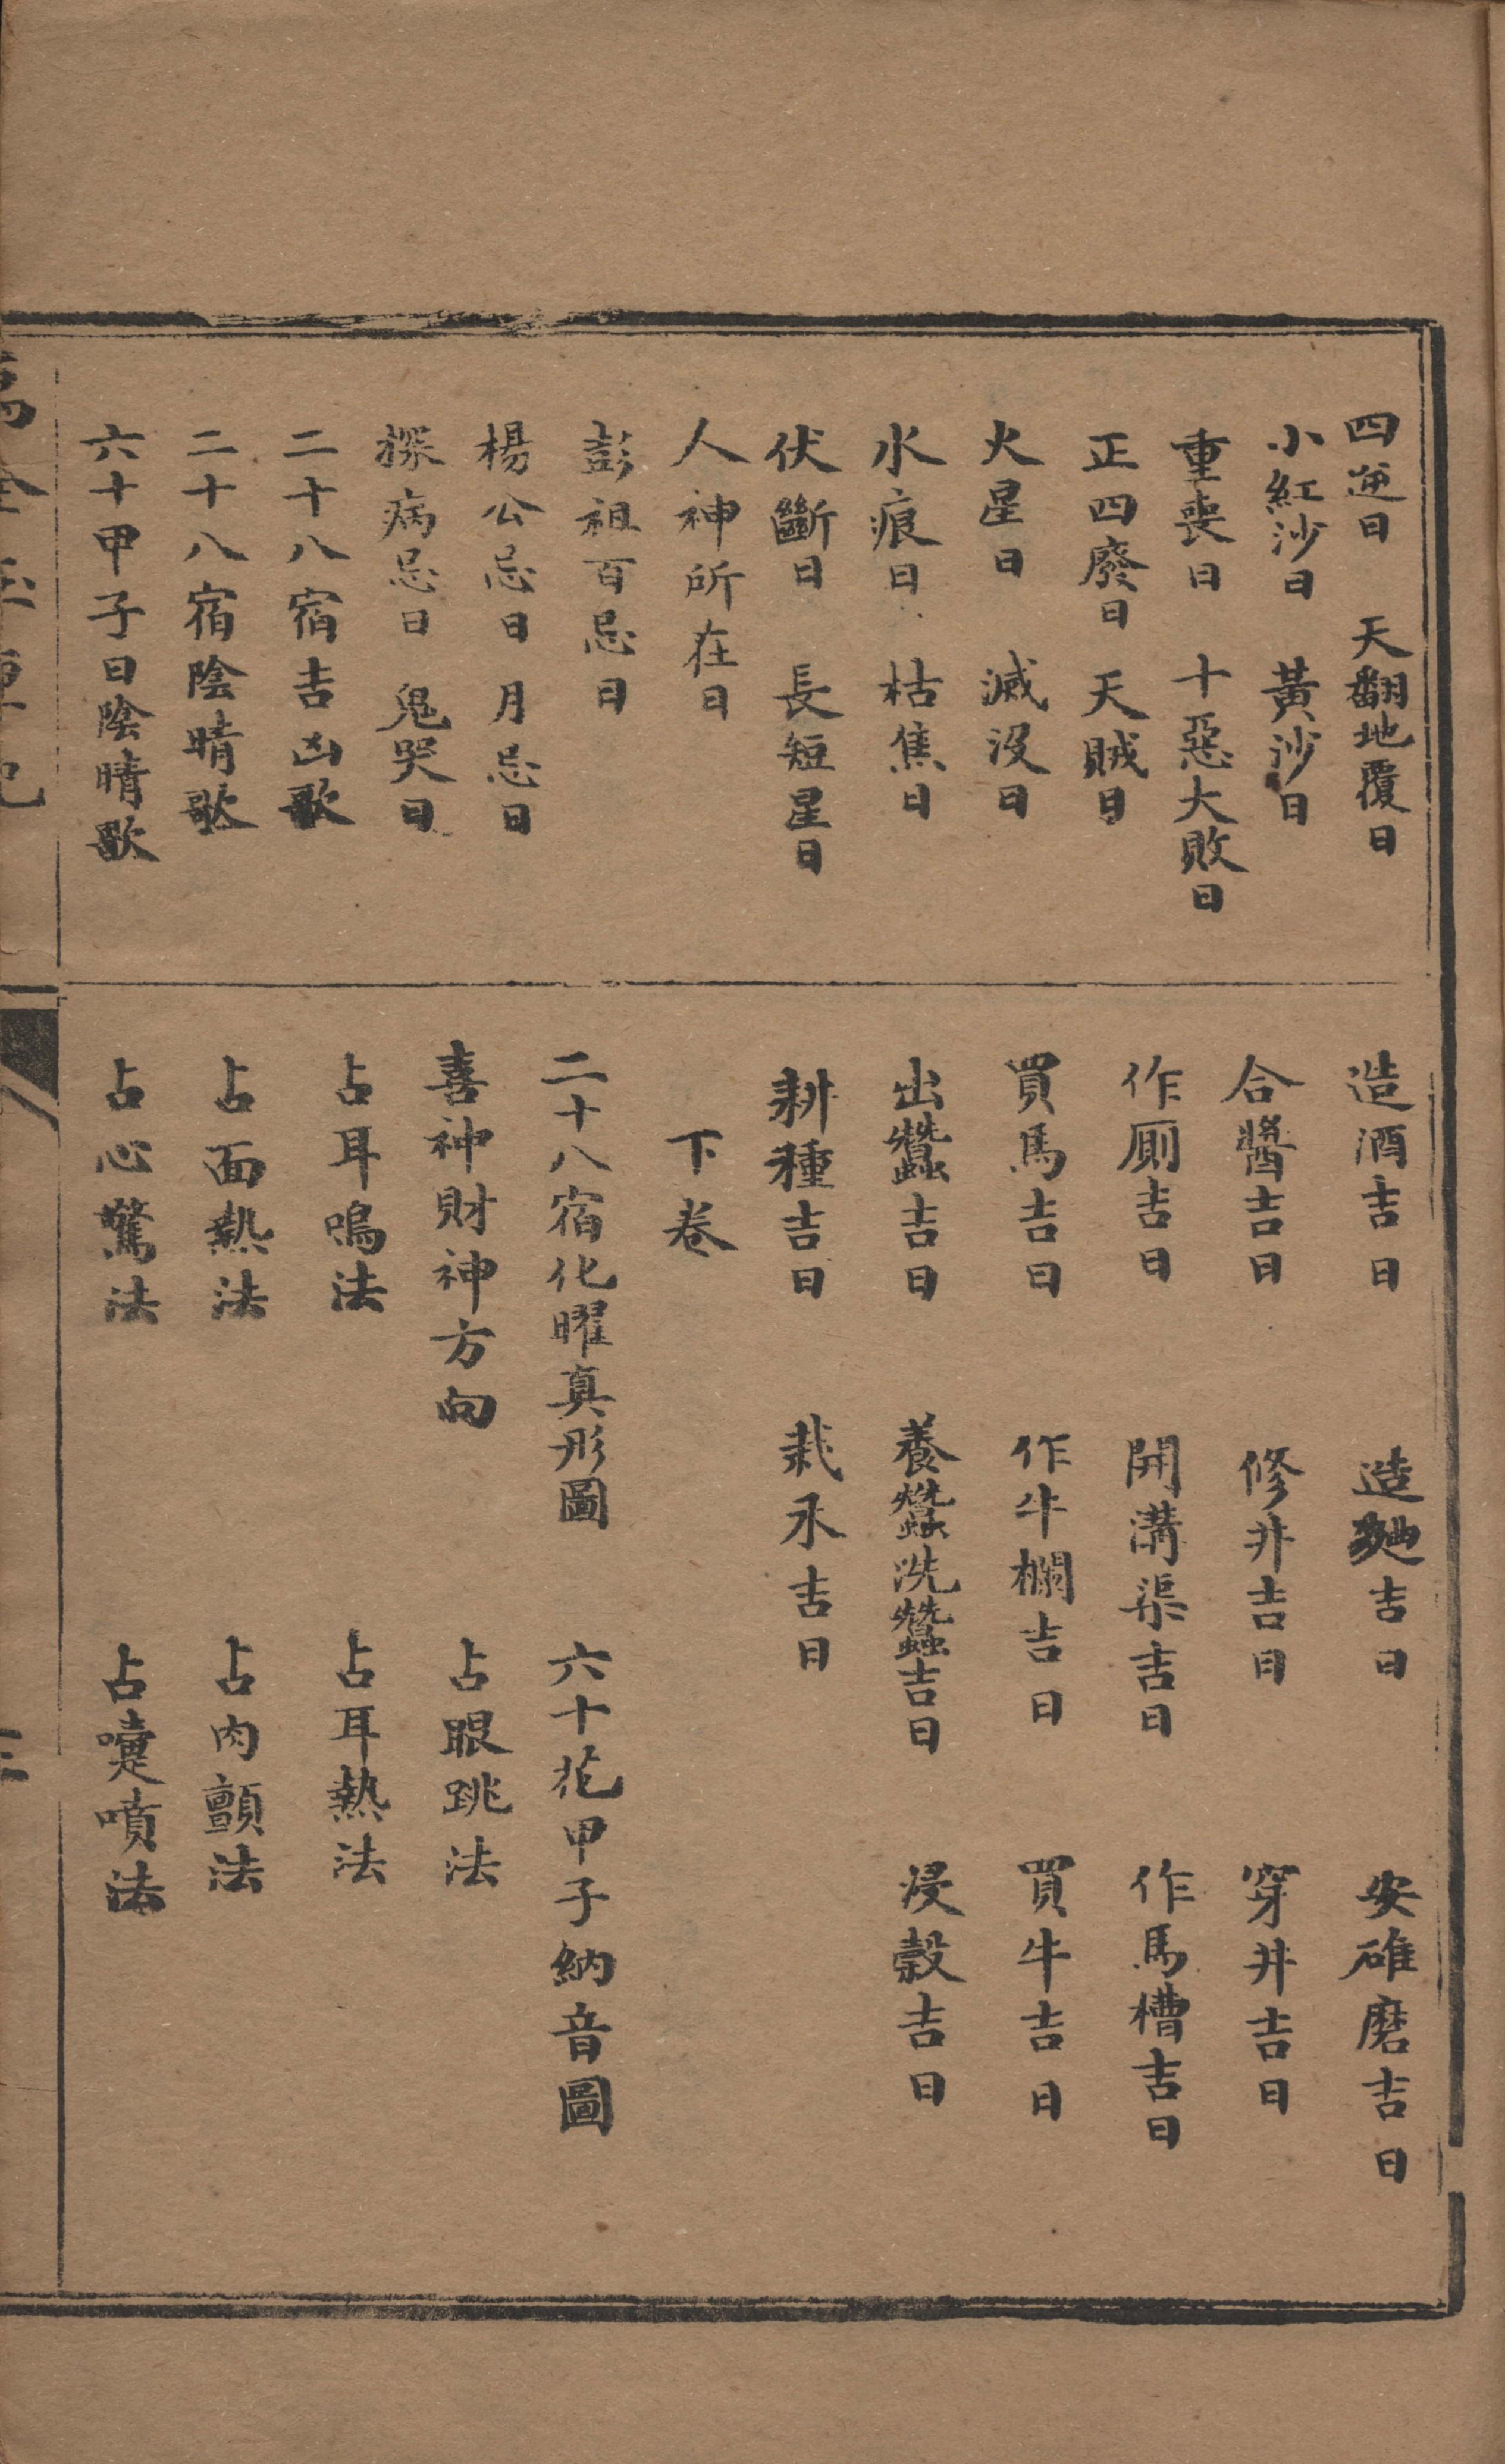 四逆日　天翻地覆日
小紅沙日　黃沙日
重喪日　十惡大敗日
正四廢日　天賊日
火星日　滅没日
水痕日　枯焦日
伏斷日　長短星日
人神所在日
彭祖百忌日
楊公忌日　月忌日
探病忌日　鬼哭日
二十八宿吉凶歌
二十八宿陰晴歌
六十甲子日陰晴歌
造酒吉日　造麯吉日　安碓磨吉日
合醬吉日　修井吉日　穿井吉日
作厠吉日　開溝渠吉日　作馬槽吉日
買馬吉日　作牛欄吉日　買牛吉日
出蠶吉日　養蠶洗蠶吉日　浸穀吉日
耕種吉日　栽禾吉日
下卷
二十八宿化曜真形圖　六十花甲子納音圖
喜神財神方向　占眼跳法
占耳鳴法　占耳熱法
占面熱法　占肉顫法
占心驚法　占嚏噴法